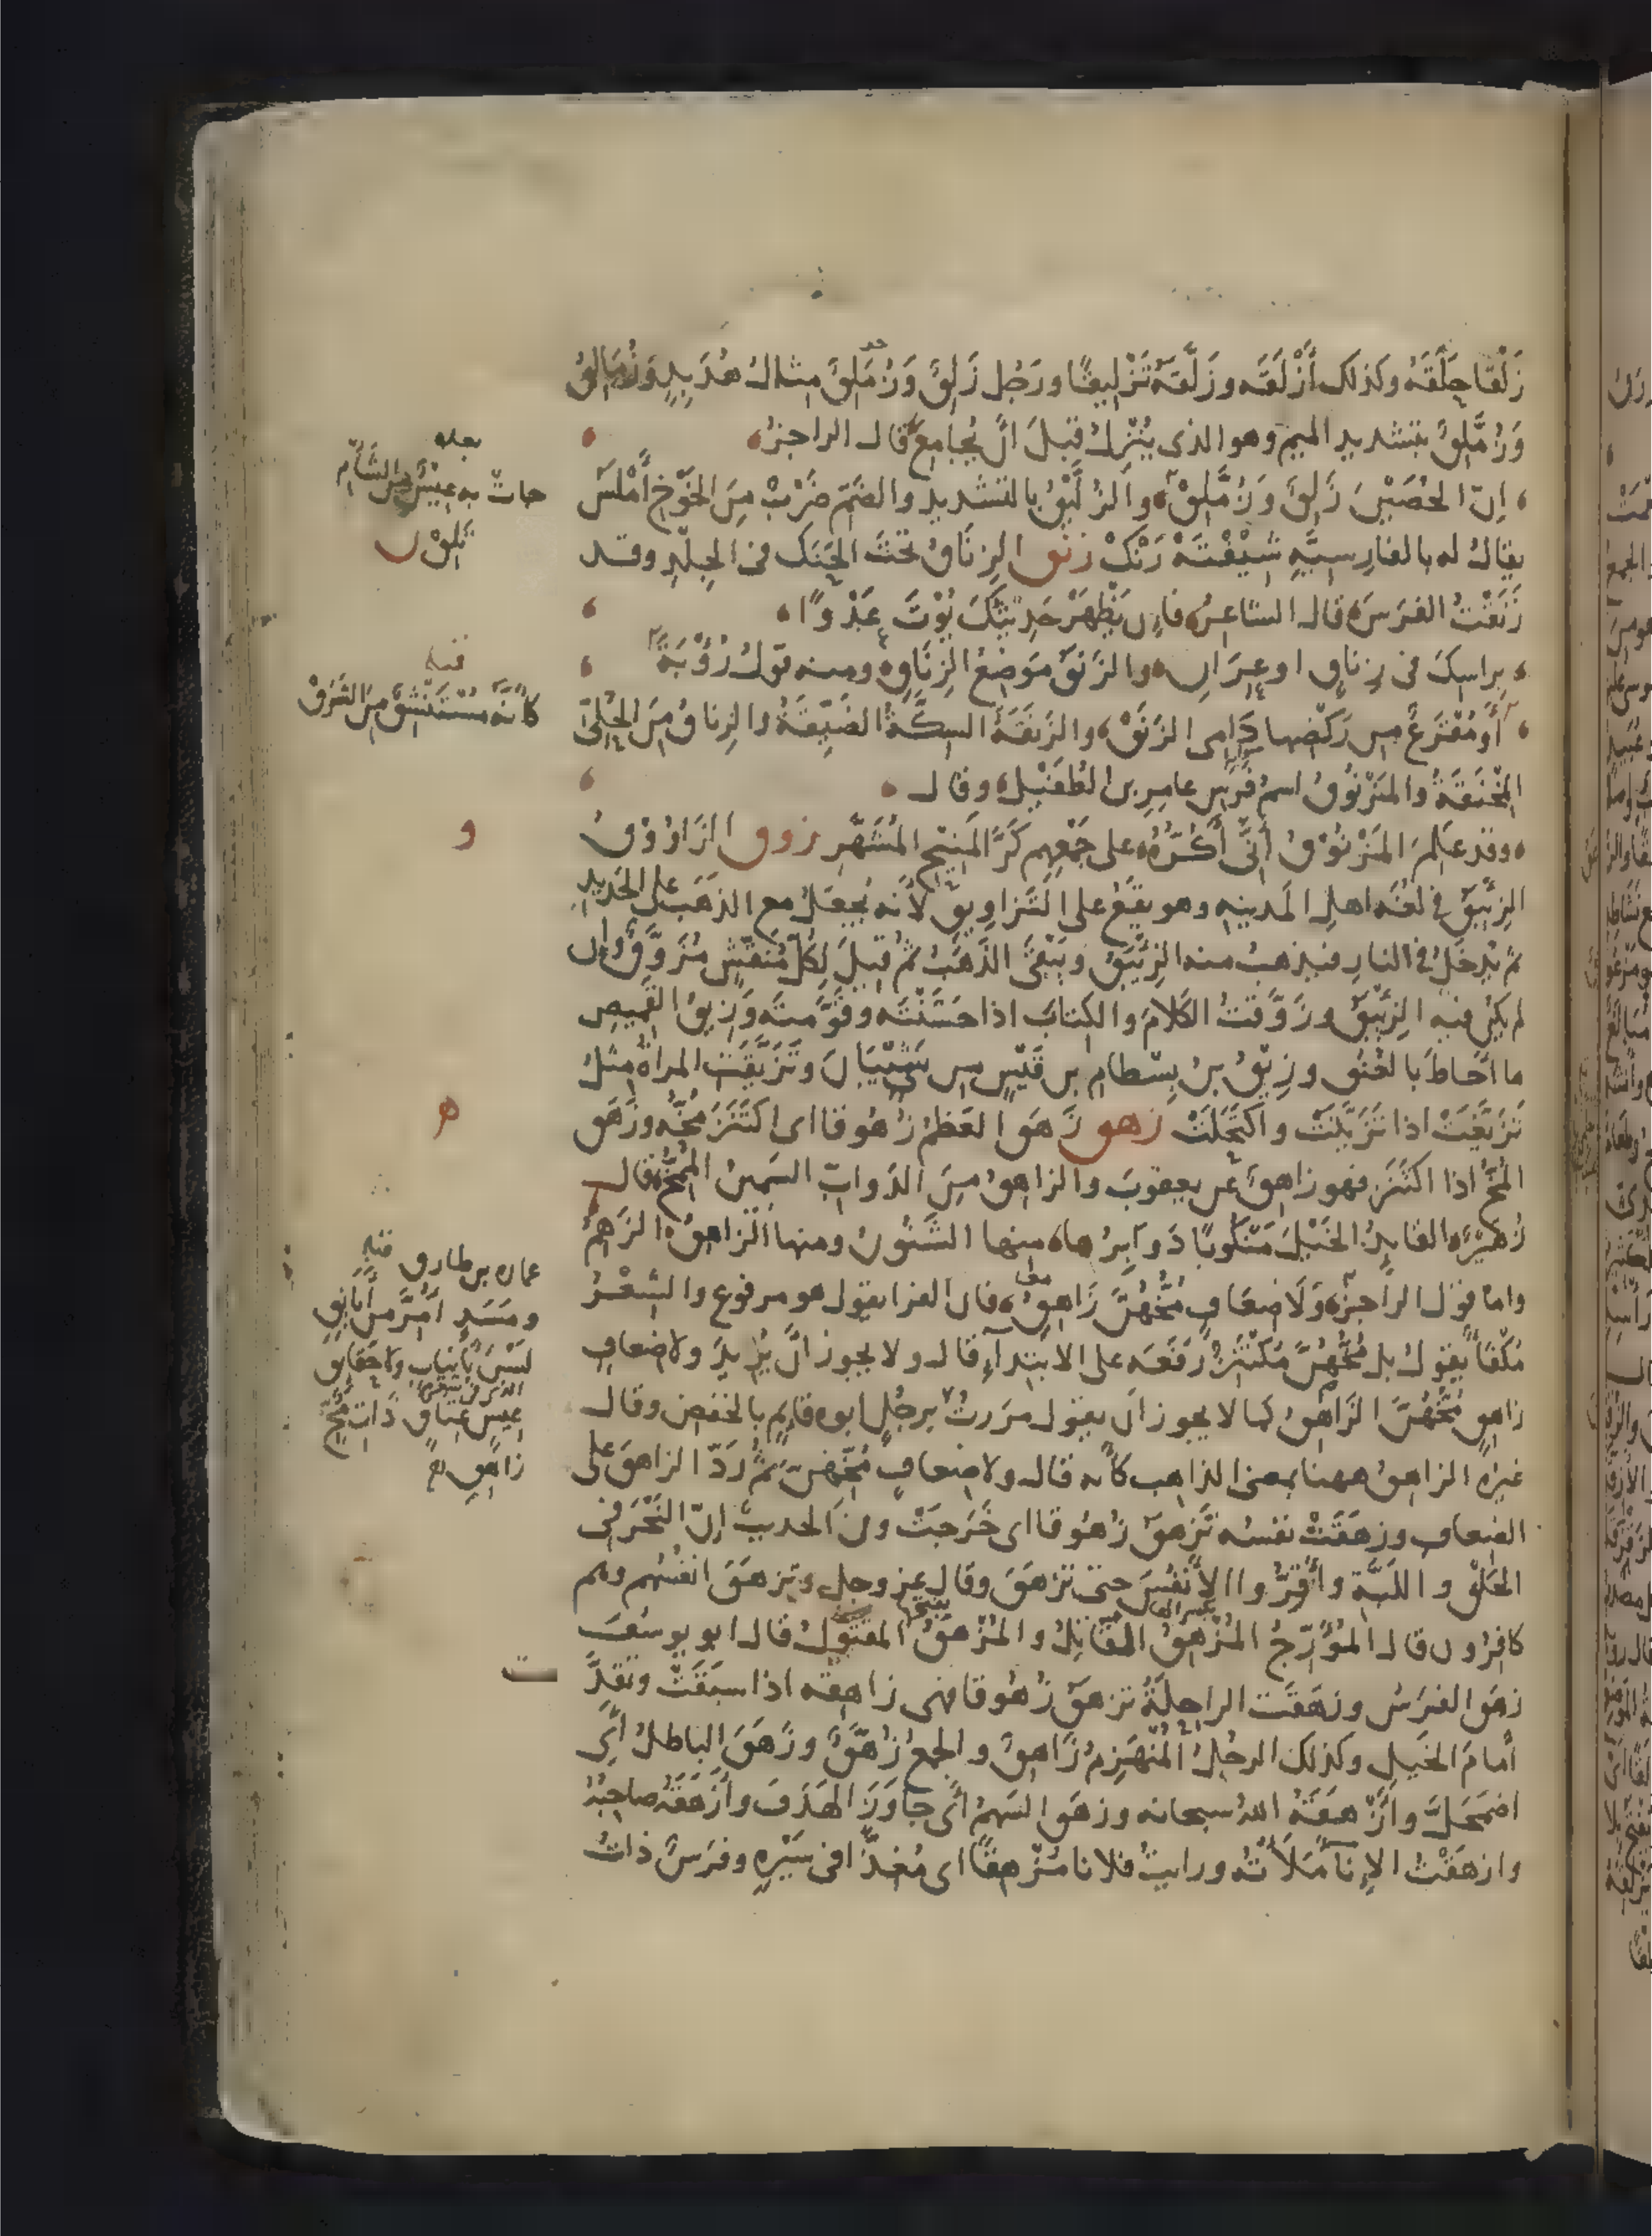 زَلْقًا حَلَقَهُ وكذلك أَزْلَقَه وزَلَّقَهُ تَزْلِيقًا ورَجُل زَلِقٌ وَزُمَلِقٌ مثال هُدَبِدٍ وَزُمَالِقٌ
وَزُمَّلِقٌ بتشديد الميم وهو الذى يُنْزِلُ قبلَ انْ يُجامِعَ قال الراجز
اِنّ الحُصَيْنَ زَلِقٌ وَزُمَّلِقْ والزُلَّيْقُ بالتشديد والضمّ ضَرْبٌ مِنَ الخَوْخِ أَمْلَسَ
يقالُ له بالفارسيّهِ شَيْفْتَهْ رَنْكْ زنق الزِنَاقُ تحتَ الحَنَك فى الجِلْدِ وقد
زَنَقْتُ الفَرَسَ قال الشاعِرُ فاِن يَظْهَرْ حَدِيثُكَ يُوْتَ عَدْوًا
بِراسِكَ فى زِناقٍ او عِرَانِ والزَنَقُ مَوْضِعُ الزِنَاقِ ومنه قولُ رُؤْبَةَ
أَوْ مُقْرَعٌ مِن رَكْضِها دَامِى الزَنَقْ والزَنَقَةُ السِكَّةُ الضَيِّقَةُ والزِناقُ مِنَ الحُلِىّ
المِخْنَقَةُ والمَزْنُوقُ اسمُ فَرَسِ عامِرِ بن الطُفَيْلِ وقال
وقد عَلِمَ المَزْنُوقُ أَنِّى أَكُرُّهُ على جَمْعِهِم كَرَّ المَنِيْحِ المُشَهَّرِ زوق الزَاوُوْقُ
الزِئْبَقُ فى لغَه اهلِ المدينه وهو يَقَعُ على التَزَاوِيقِ لأنه يُجعَلُ مع الذهَب على الحَدِيدِ
ثم يُدخَلُ فى النارِ فيذهبُ منه الزِئْبَقُ ويَبْقَى الذَهَبُ ثُم قيلَ لِكُلِّ مُنَقَّشٍ مُزَوَّقٌ واِن
لم يكن فيه الزِئْبَقُ وزَوَّقْتُ الكَلامَ والكِتابَ اذا حَسَّنْتَه وقَوَّمتَه وَزِيقُ القَمِيصِ
ما أَحَاطَ بالعُنُقِ وزِيْقُ بنُ بِسْطامِ بن قَيْسٍ مِن شَيْبَانَ وتَزَيَّقَت المراةُ مثلُ
تَزَيَّغَتْ اذا تَزَيَّنَتْ واكتَحَلَتْ زهق زَهَقَ العَظْمُ زُهُوقا اى اكتَنَزَ مُخُّه وزَهَقَ
المُخُّ اذا اكْتَنَزَ فهو زاهِقٌ عَن يعقوبَ والزاهِقُ مِنَ الدَوابّ السَمِينُ المُمِخُّ قال
زُهَيْر القايِدُ الخَيْلَ مَنْكُوبًا دَوابِرُها منها الشَنُونُ ومنها الزاهِقُ الزَهِمُ
وامّا قول الراجز وَلَا ضِعَافٍ مُخُّهُنّ زَاهِقُ فان الفرا يقول هو مرفوع والشِعْرُ
مُكْفَأٌ يقولُ بل مُخُّهُنّ مُكْتَنِزٌ رَفَعَه على الابتداءِ قال ولا يجوز انْ يُرِيدَ ولا ضِعافٍ
زاهِقٍ مُخُّهُنّ الزَاهِقُ كما لا يجوز ان يقول مَرَرتُ بِرجُلٍ ابوه قايِمٍ بالخفض وقال
غيرُه الزاهِقُ ههنا بمعنى الذاهب كأنه قال ولا ضِعافٍ مُخُّهُنّ ثُم رَدَّ الزاهِقَ على
الضِعافِ وزهَقَتْ نفسُه تَزهَقُ زُهُوقا اى خَرَجَتْ وفى الحديث اِنّ النَحْرَ فى
الحَلْقِ واللَبَّةِ وأَقِرُّوا الأَنْفُسَ حتى تَزهَقَ وقال عز وجل وتزهَقَ انفُسُهم وهم
كافِرُون قال المُؤَرِّجُ المُزْهِقُ القاتِلُ والمُزْهَقُ المقتولُ قال ابو يوسُفَ
زهَقَ الفَرَسُ وزهَقَت الراحِلَةُ تزهَقُ زُهُوقا فهى زاهِقَه اذا سَبَقَتْ وتقدَّ
أَمامَ الخَيلِ وكذلك الرجُلُ المُنْهَزِمُ زَاهِقٌ والجمعُ زُهَّقٌ وزَهَقَ الباطلُ أَى
اضمَحَلَّ وأَزْهَقَهُ اللهُ سبحانه وزهَقَ السَهمُ اى جاوَزَ الهَدَفَ وأَزْهَقَهُ صاحِبُهُ
وازهَقْتُ الإنآءَ مَلَأْتُه ورايتُ فلانا مُزْهِقًا اى مُغِذًّا فى سَيْرِه وفَرَسٌ ذاتُ
بعده
جات به عِيْسٌ من الشَأمِ
تَلِقْ ن
قبله
كأنَّه مُسْتَنْشِقٌ مِنَ الشَرَقْ
و
ه
عماره بن طارق قبله
ومَسَدٍ أُمِرَّ من أَيَانِقِ
لَسْنَ بأَنيابٍ ولا حَقايِق
عِيسٍ عِتاقٍ ذَاتِ مُخٍّ
زاهِقِ
ت